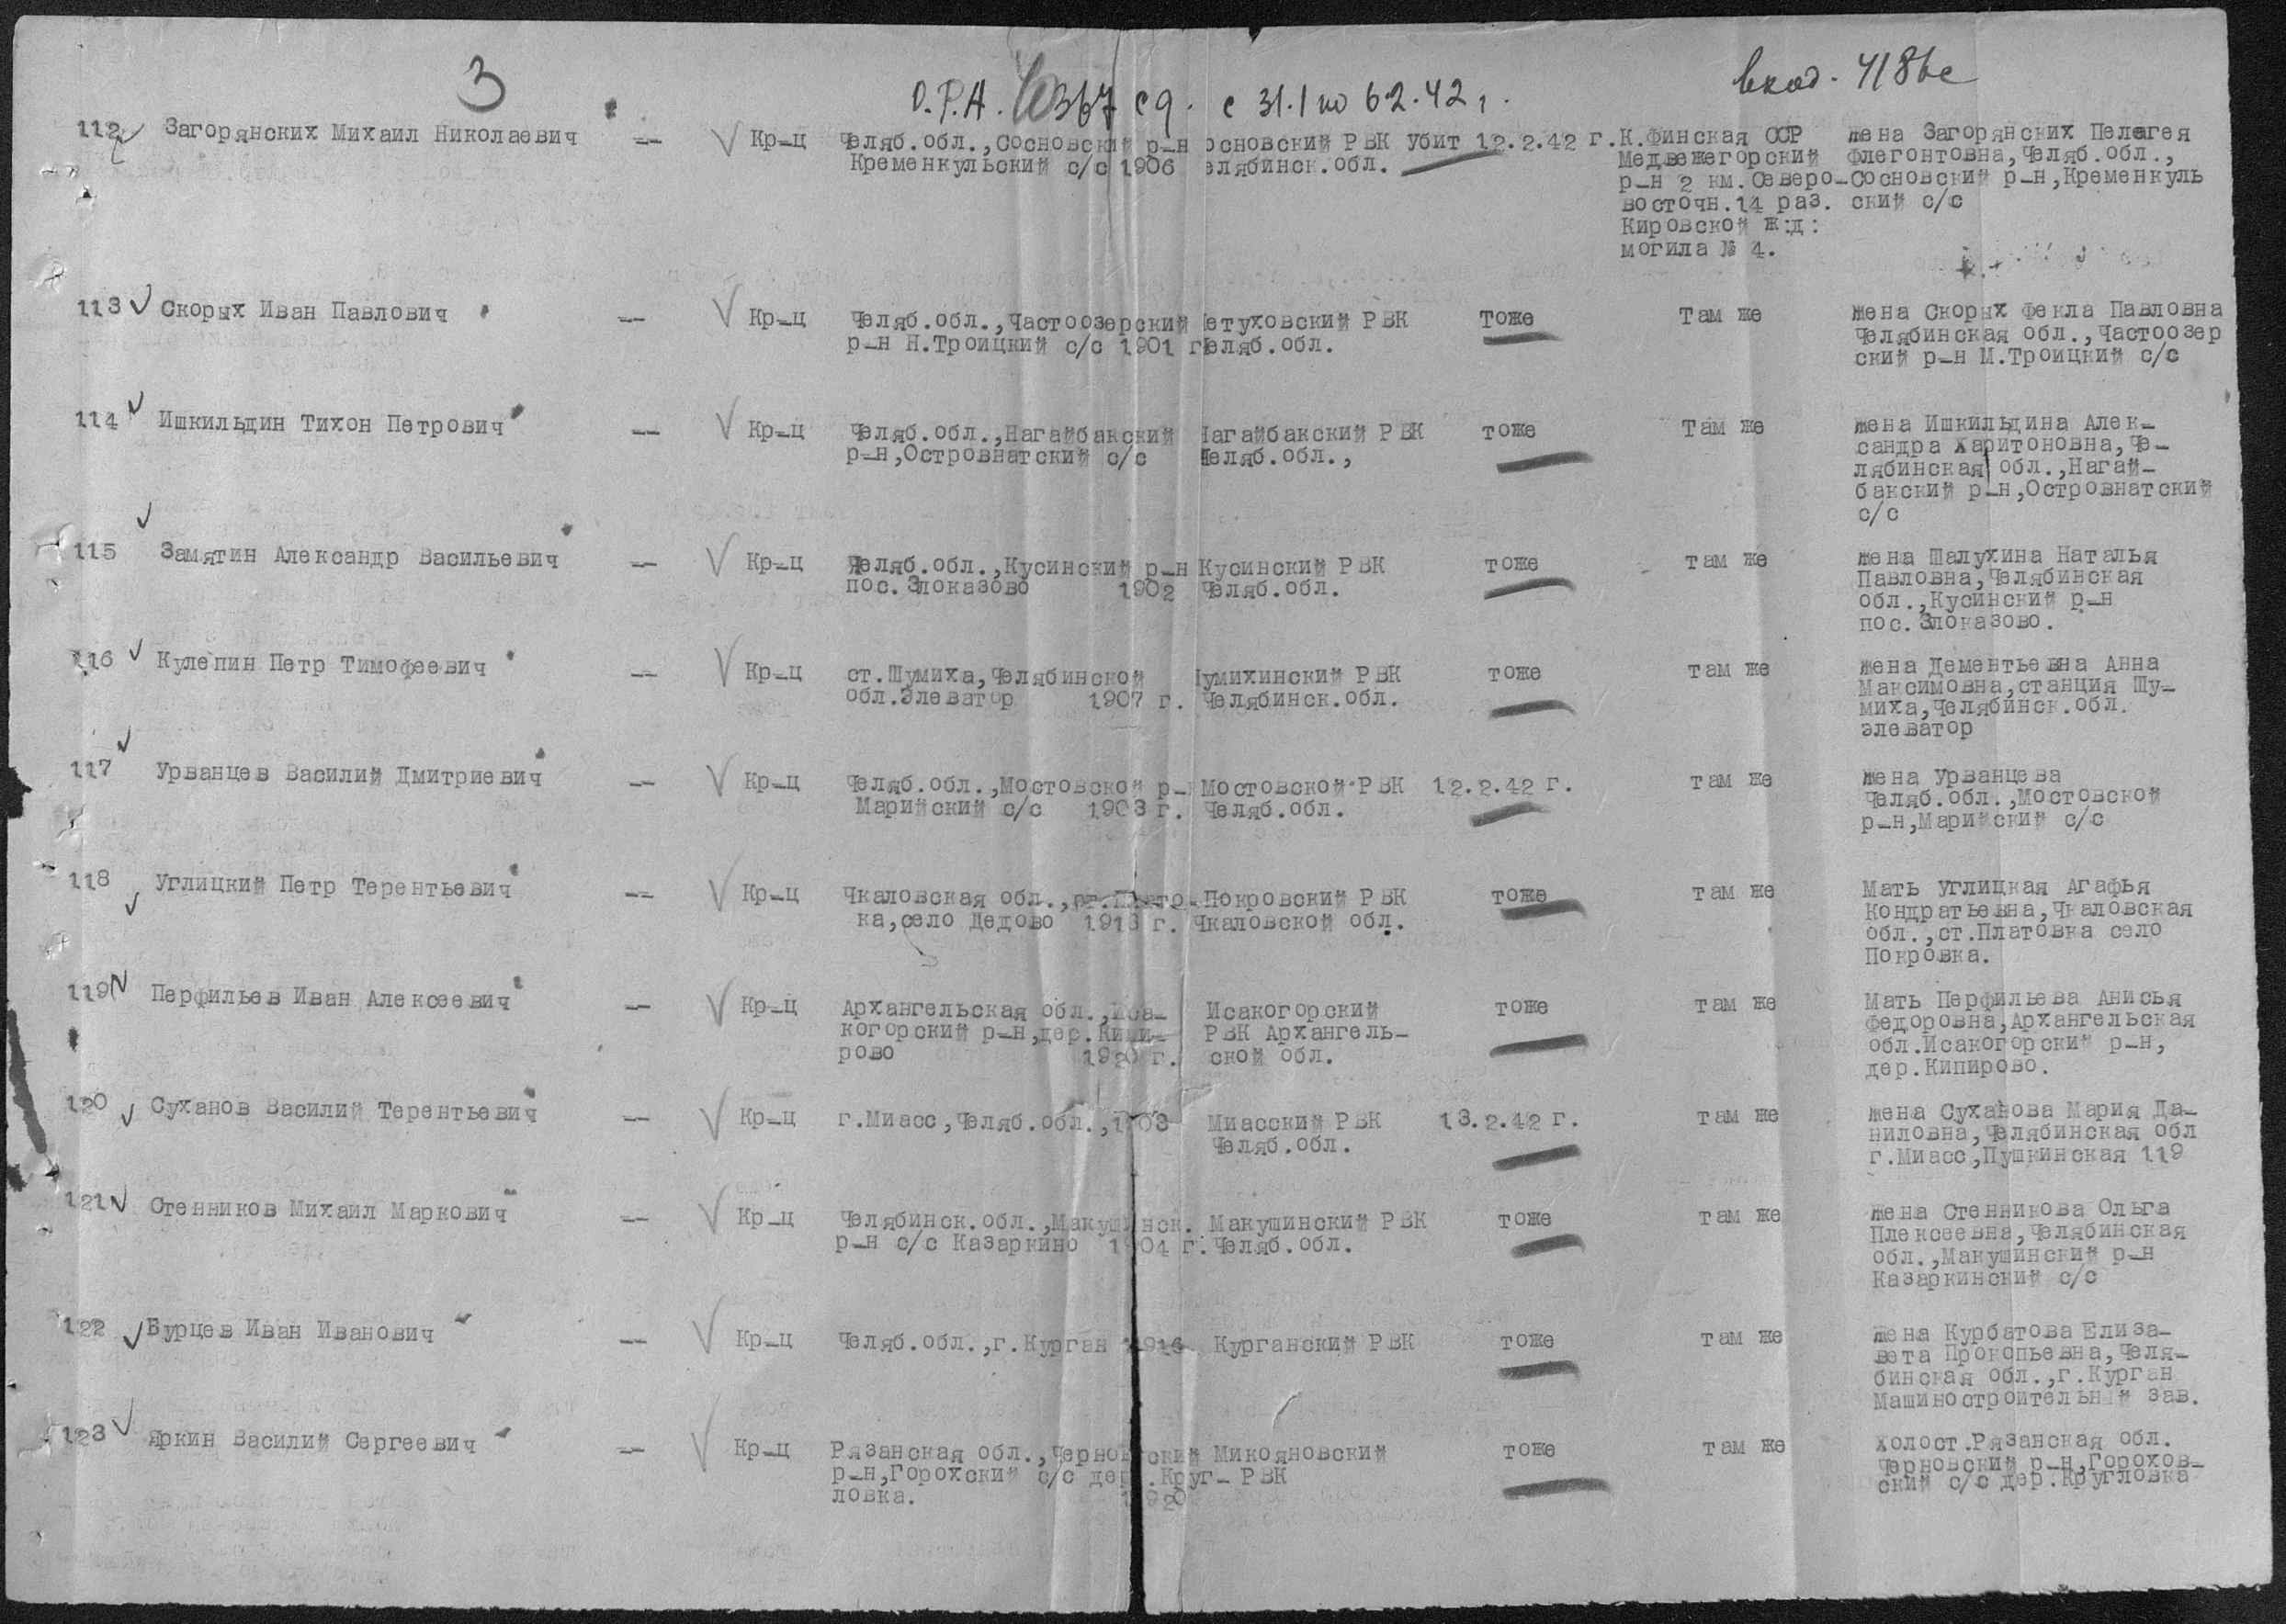 3
О.Р.А. 367 сд. с 31.1 по 6.2.42 г.
вход. 4186с
112 Загорянских Михаил Николаевич -- Кр-ц Челяб.обл.,Сосновский р-н основский РВК Убит 12.2.42 г. К.Финская ССР жена Загорянских Пелагея
Кременкульский с/с 1906 елябинск.обл. Медвежегорский Флегонтовна,Челяб.обл.,
р-н 2 км.Северо- Сосновский р-н,Кременкуль
восточн.14 раз. ский с/с
Кировской ж:д:
могила № 4.
113 Скорых Иван Павлович -- Кр-ц Челяб.обл.,Частоозерский етуховский РВК тоже Там же жена Скорых Фекла Павловна
р-н Н.Троицкий с/с 1901 г еляб.обл. Челябинская обл.,Частоозер
ский р-н М.Троицкий с/с
114 Ишкильдин Тихон Петрович -- Кр-ц Челяб.обл.,Нагайбакский Нагайбакский РВК тоже Там же жена Ишкильдина Алек-
р-н,Островнатский с/с Челяб.обл., сандра Харитоновна,Че-
лябинская обл.,Нагай-
бакский р-н,Островнатский
с/с
115 Замятин Александр Васильевич -- Кр-ц Челяб.обл.,Кусинский р-н Кусинский РВК тоже там же жена Шалухина Наталья
пос.Злоказово 1902 Челяб.обл. Павловна,Челябинская
обл.,Кусинский р-н
пос.Злоказово.
116 Кулепин Петр Тимофеевич -- Кр-ц ст.Шумиха,Челябинской Шумихинский РВК тоже там же жена Дементьевна Анна
обл.Элеватор 1907 г. Челябинск.обл. Максимовна,станция Шу-
миха,Челябинск.обл.
элеватор
117 Урванцев Василий Дмитриевич -- Кр-ц Челяб.обл.,Мостовской р- Мостовской РВК 12.2.42 г. там же жена Урванцева
Марийский с/с 1903 г. Челяб.обл. Челяб.обл.,Мостовской
р-н,Марийский с/с
118 Углицкий Петр Терентьевич -- Кр-ц Чкаловская обл., Покровский РВК тоже там же Мать Углицкая Агафья
ка,село Дедово г. Чкаловской обл. Кондратьевна,Чкаловская
обл.,ст.Платовка село
Покровка.
119 Перфильев Иван Алексеевич -- Кр-ц Архангельская обл.,Иса- Исакогорский тоже там же Мать Перфильева Анисья
когорский р-н,дер.Кипи- РВК Архангель- Федоровна,Архангельская
рово 1920 г. ской обл. обл.Исакогорский р-н,
дер.Кипирово.
120 Суханов Василий Терентьевич -- Кр-ц г.Миасс,Челяб.обл., Миасский РВК 13.2.42 г. там же жена Суханова Мария Да-
Челяб.обл. ниловна,Челябинская обл
г.Миасс,Пушкинская 119
121 Стенников Михаил Маркович -- Кр-ц Челябинск.обл.,Макушинск. Макушинский РВК тоже там же жена Стенникова Ольга
р-н с/с Казаркино 1904 г. Челяб.обл. Плексеевна,Челябинская
обл.,Макушинский р-н
Казаркинский с/с
122 Бурцев Иван Иванович -- Кр-ц Челяб.обл.,г.Курган Курганский РВК тоже там же жена Курбатова Елиза-
вета Прокопьевна,Челя-
бинская обл.,г.Курган
Машиностроительный зав.
123 Яркин Василий Сергеевич -- Кр-ц Рязанская обл.,Черновский Микояновский тоже там же холост.Рязанская обл.
р-н,Горохский с/с дер.Круг- РВК Черновский р-н,Горохов-
ловка. 1920 ский с/с дер.Кругловка